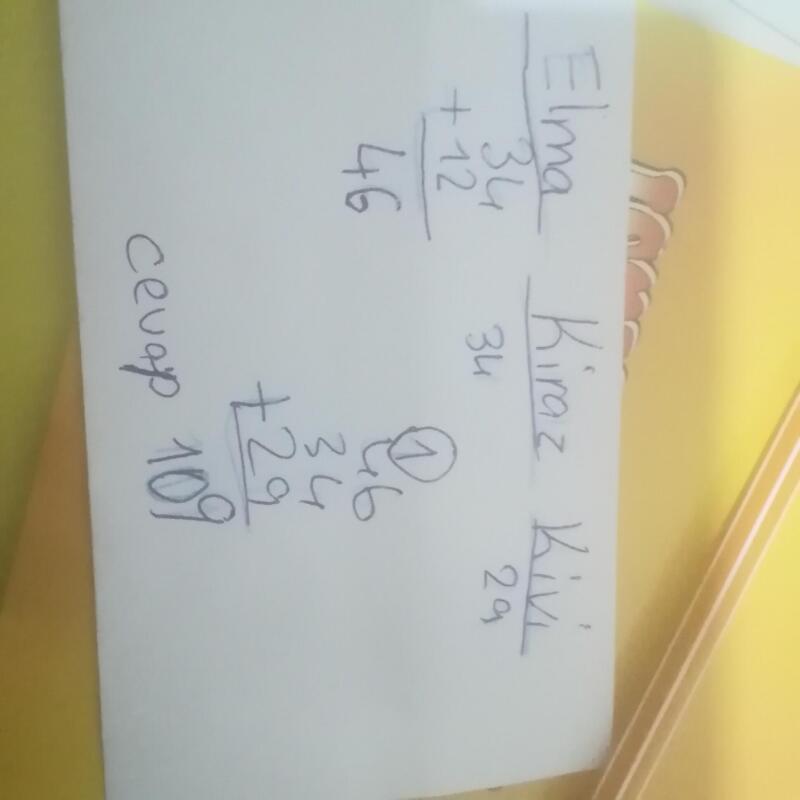 Elma Kiraz Kivi
34 34 29
+ 12
46
1
46
34
+ 29
cevap 109